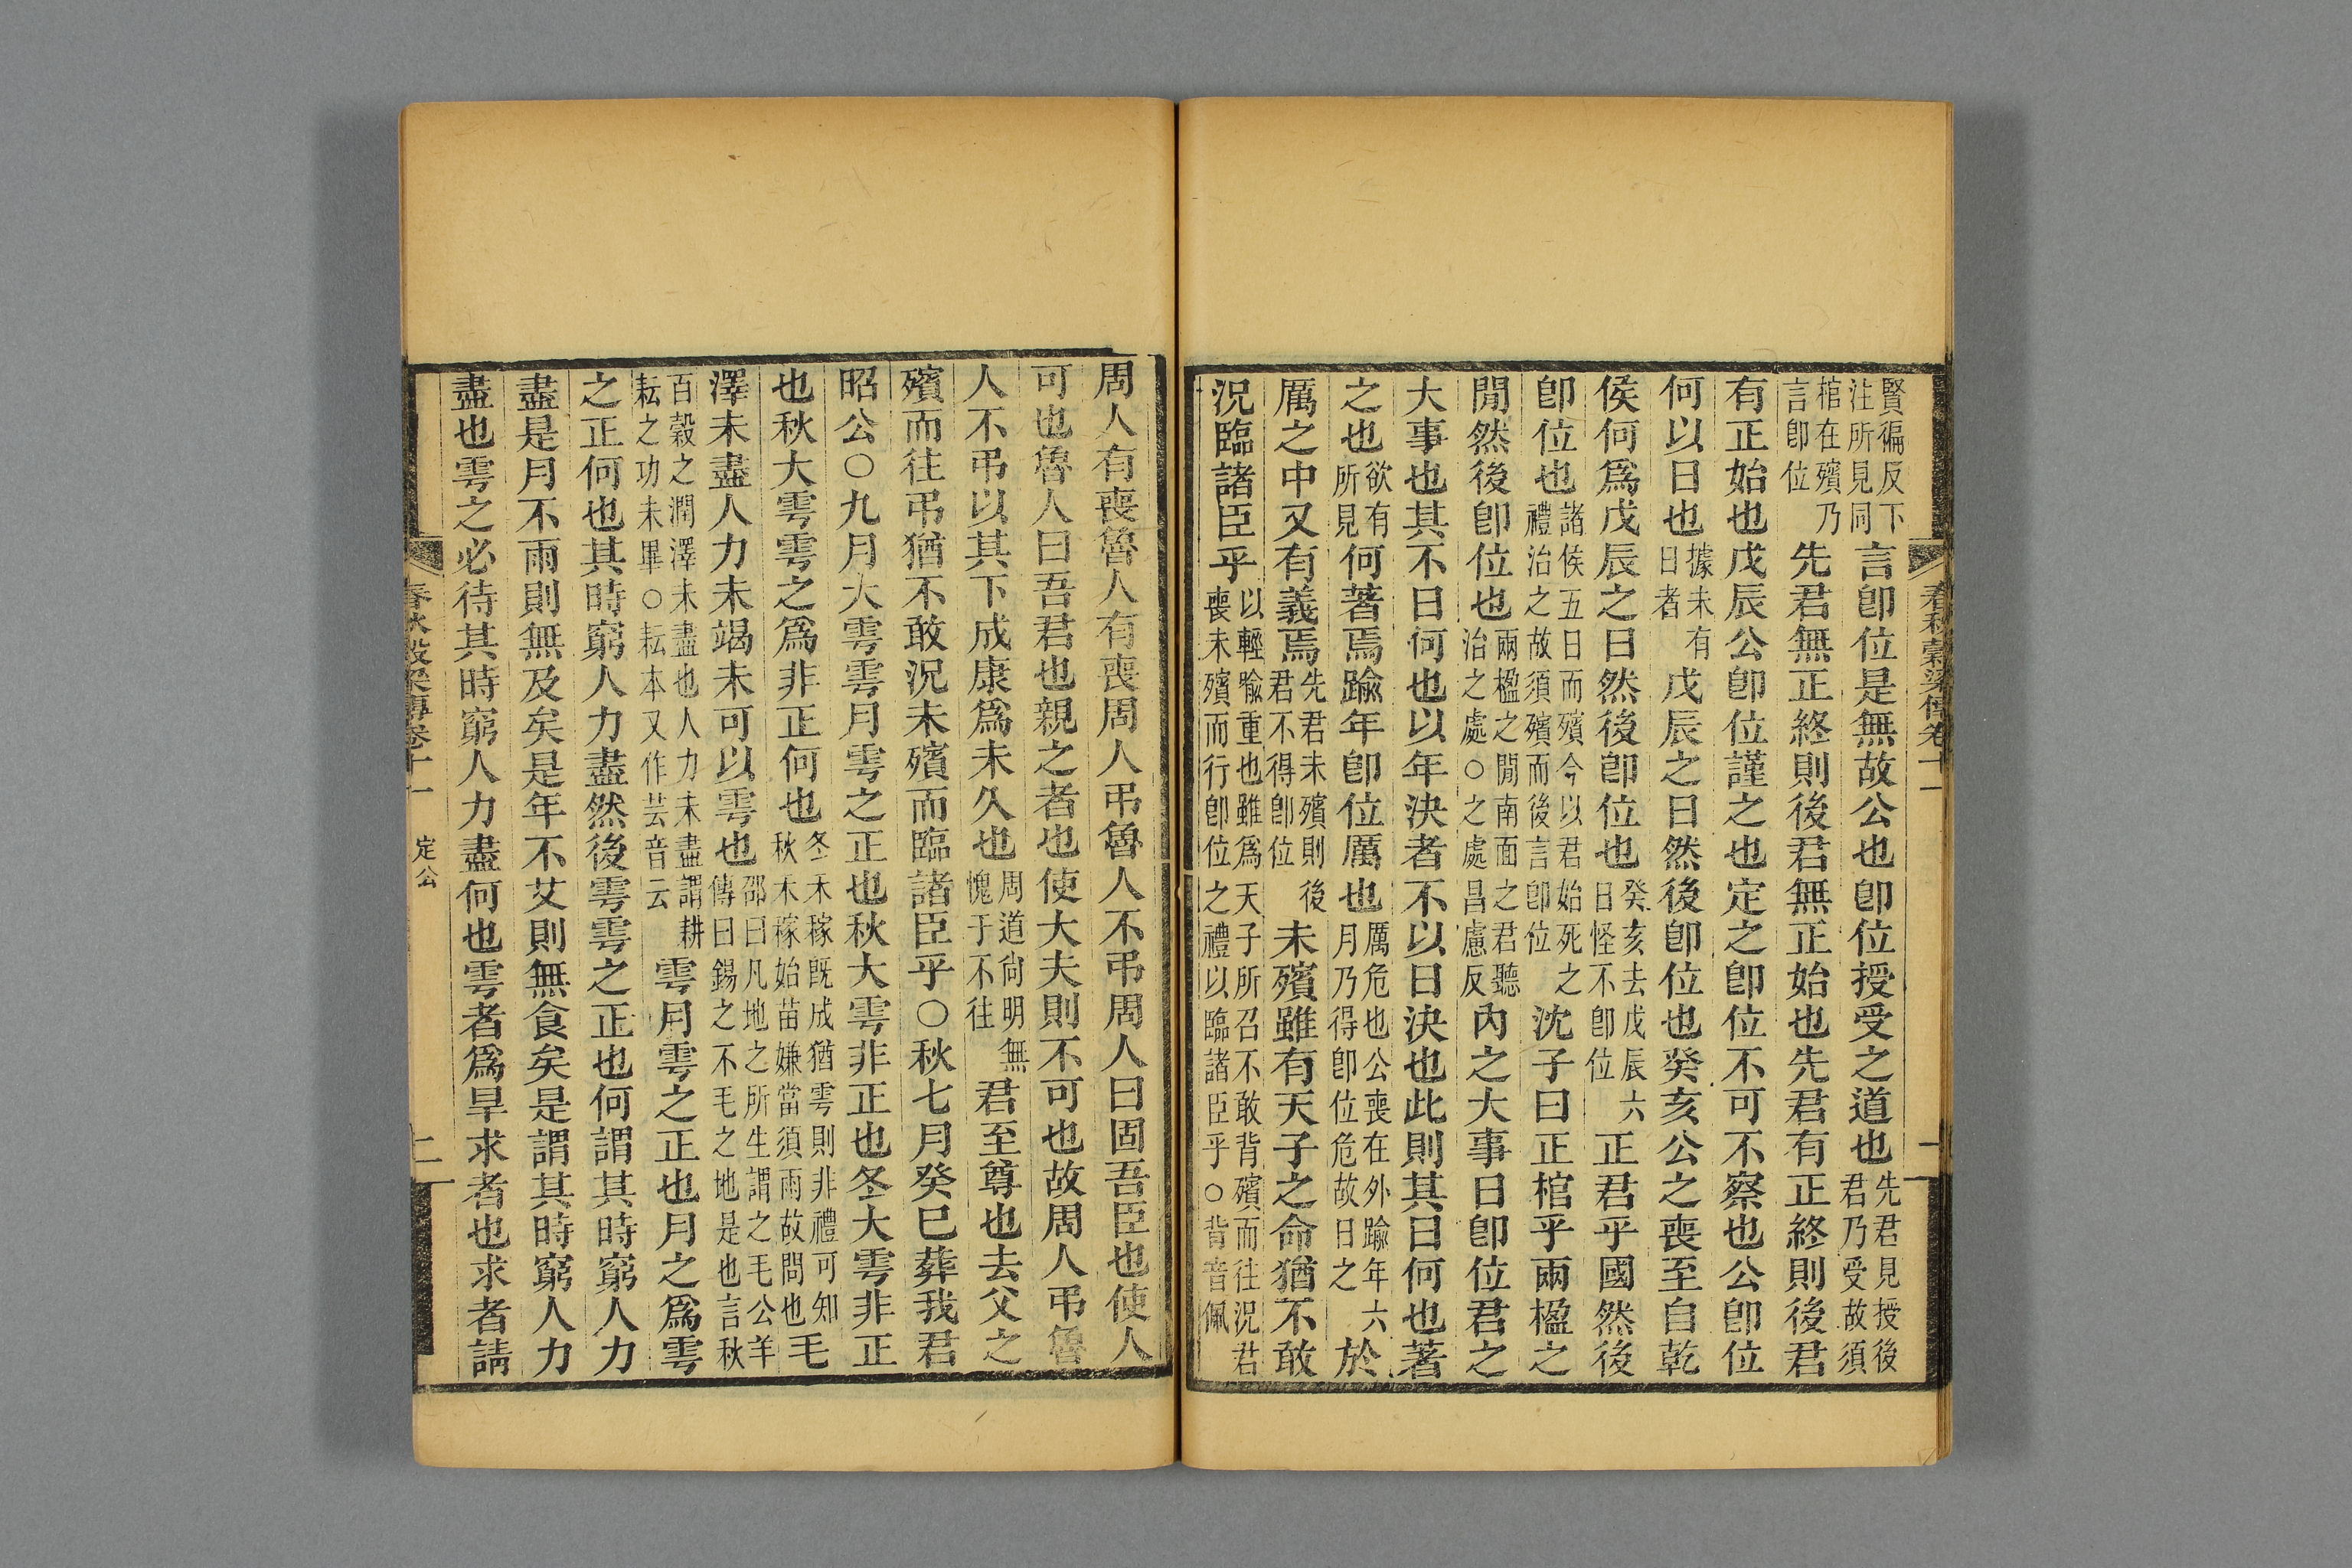 春秋穀梁傳卷十一 一
賢徧反下注所見同言卽位是無故公也卽位授受之道也先君見授後君乃受故須
棺在殯乃言卽位先君無正終則後君無正始也先君有正終則後君
有正始也戊辰公卽位謹之也定之卽位不可不察也公卽位
何以日也據未有日者戊辰之日然後卽位也癸亥公之喪至自乾
侯何爲戊辰之日然後卽位也癸亥去戊辰六日怪不卽位正君乎國然後
卽位也諸侯五日而殯今以君始死之禮治之故須殯而後言卽位沈子曰正棺乎兩楹之
閒然後卽位也兩楹之閒南面之君聽治之處○之處昌慮反內之大事日卽位君之
大事也其不日何也以年決者不以日決也此則其日何也著
之也欲有所見何著焉踰年卽位厲也厲危也公喪在外踰年六月乃得卽位危故日之於
厲之中又有義焉先君未殯則後君不得卽位未殯雖有天子之命猶不敢
況臨諸臣乎以輕喻重也雖爲天子所召不敢背殯而往況君喪未殯而行卽位之禮以臨諸臣乎○背音佩
周人有喪魯人有喪周人弔魯人不弔周人曰固吾臣也使人
可也魯人曰吾君也親之者也使大夫則不可也故周人弔魯
人不弔以其下成康爲未久也周道尙明無愧于不往君至尊也去父之
殯而往弔猶不敢況未殯而臨諸臣乎○秋七月癸巳葬我君
昭公○九月大雩雩月雩之正也秋大雩非正也冬大雩非正
也秋大雩雩之爲非正何也冬禾稼既成猶雩則非禮可知秋禾稼始苗嫌當須雨故問也毛
澤未盡人力未竭未可以雩也邵曰凡地之所生謂之毛公羊傳曰錫之不毛之地是也言秋
百穀之潤澤未盡也人力未盡謂耕耘之功未畢○耘本又作芸音云雩月雩之正也月之爲雩
之正何也其時窮人力盡然後雩雩之正也何謂其時窮人力
盡是月不雨則無及矣是年不艾則無食矣是謂其時窮人力
盡也雩之必待其時窮人力盡何也雩者爲旱求者也求者請
春秋穀梁傳卷十一 定公 二